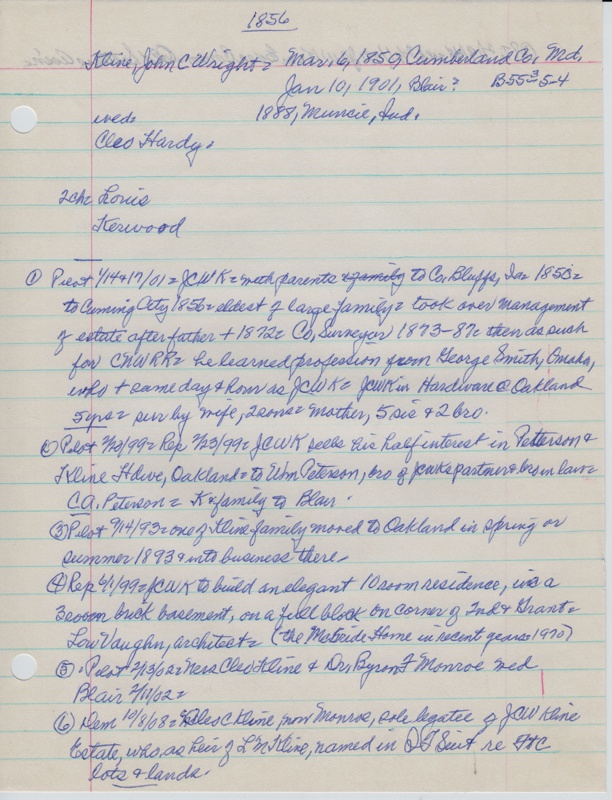 1856
Kline, John C Wright = Mar. 6, 1850, Cumberland Co, Md.
Jan 10, 1901, Blair? B-55-3-S-4
wed: 1888, Muncie, Ind.
Cleo Hardy.
2ch: Louis
Kerwood
① Pilot 1/14+17/01 = JCWK = with parents & family to Co. Bluffs, Ia =
to Cuming City 1856 = eldest of large family = took over management
of estate after father + 1872 = Co, Surveyor 1873-87 = then as such
for CNWRR = he learned profession from George Smith, Omaha,
who + same day & hour as JCWK = JCWK in Hardware @ Oakland
5yrs = sur by wife, 2sons = mother, 5 sis & 2 bro.
② Pilot = Rep 2/23/99 = JCWK sells his half interest in Petterson &
Kline Hdwe, Oakland = to Wm Peterson, bro of JCWKs partner & bro in law =
C.A. Peterson = K & family to Blair.
③ Pilot 9/14/93 = one of Kline family moved to Oakland in spring or
summer 1893 & into business there.
④ Rep 6/1/99 = JCWK to build an elegant 10 room residence, inc a
3room brick basement, on a full block on corner of 2nd & Grant =
Low Vaughn, architect = (the McBride Home in recent years 1970)
⑤ Pilot 2/13/02 = Mrs Cleo Kline & Dr. Byron F Monroe wed
Blair 2/11/02 =
⑥ Dem 10/8/08 = Cleo C Kline now Monroe, sole legatee of JCW Kline
Estate, who, as heir of L M Kline, named in Q T Suit re
lots & lands.